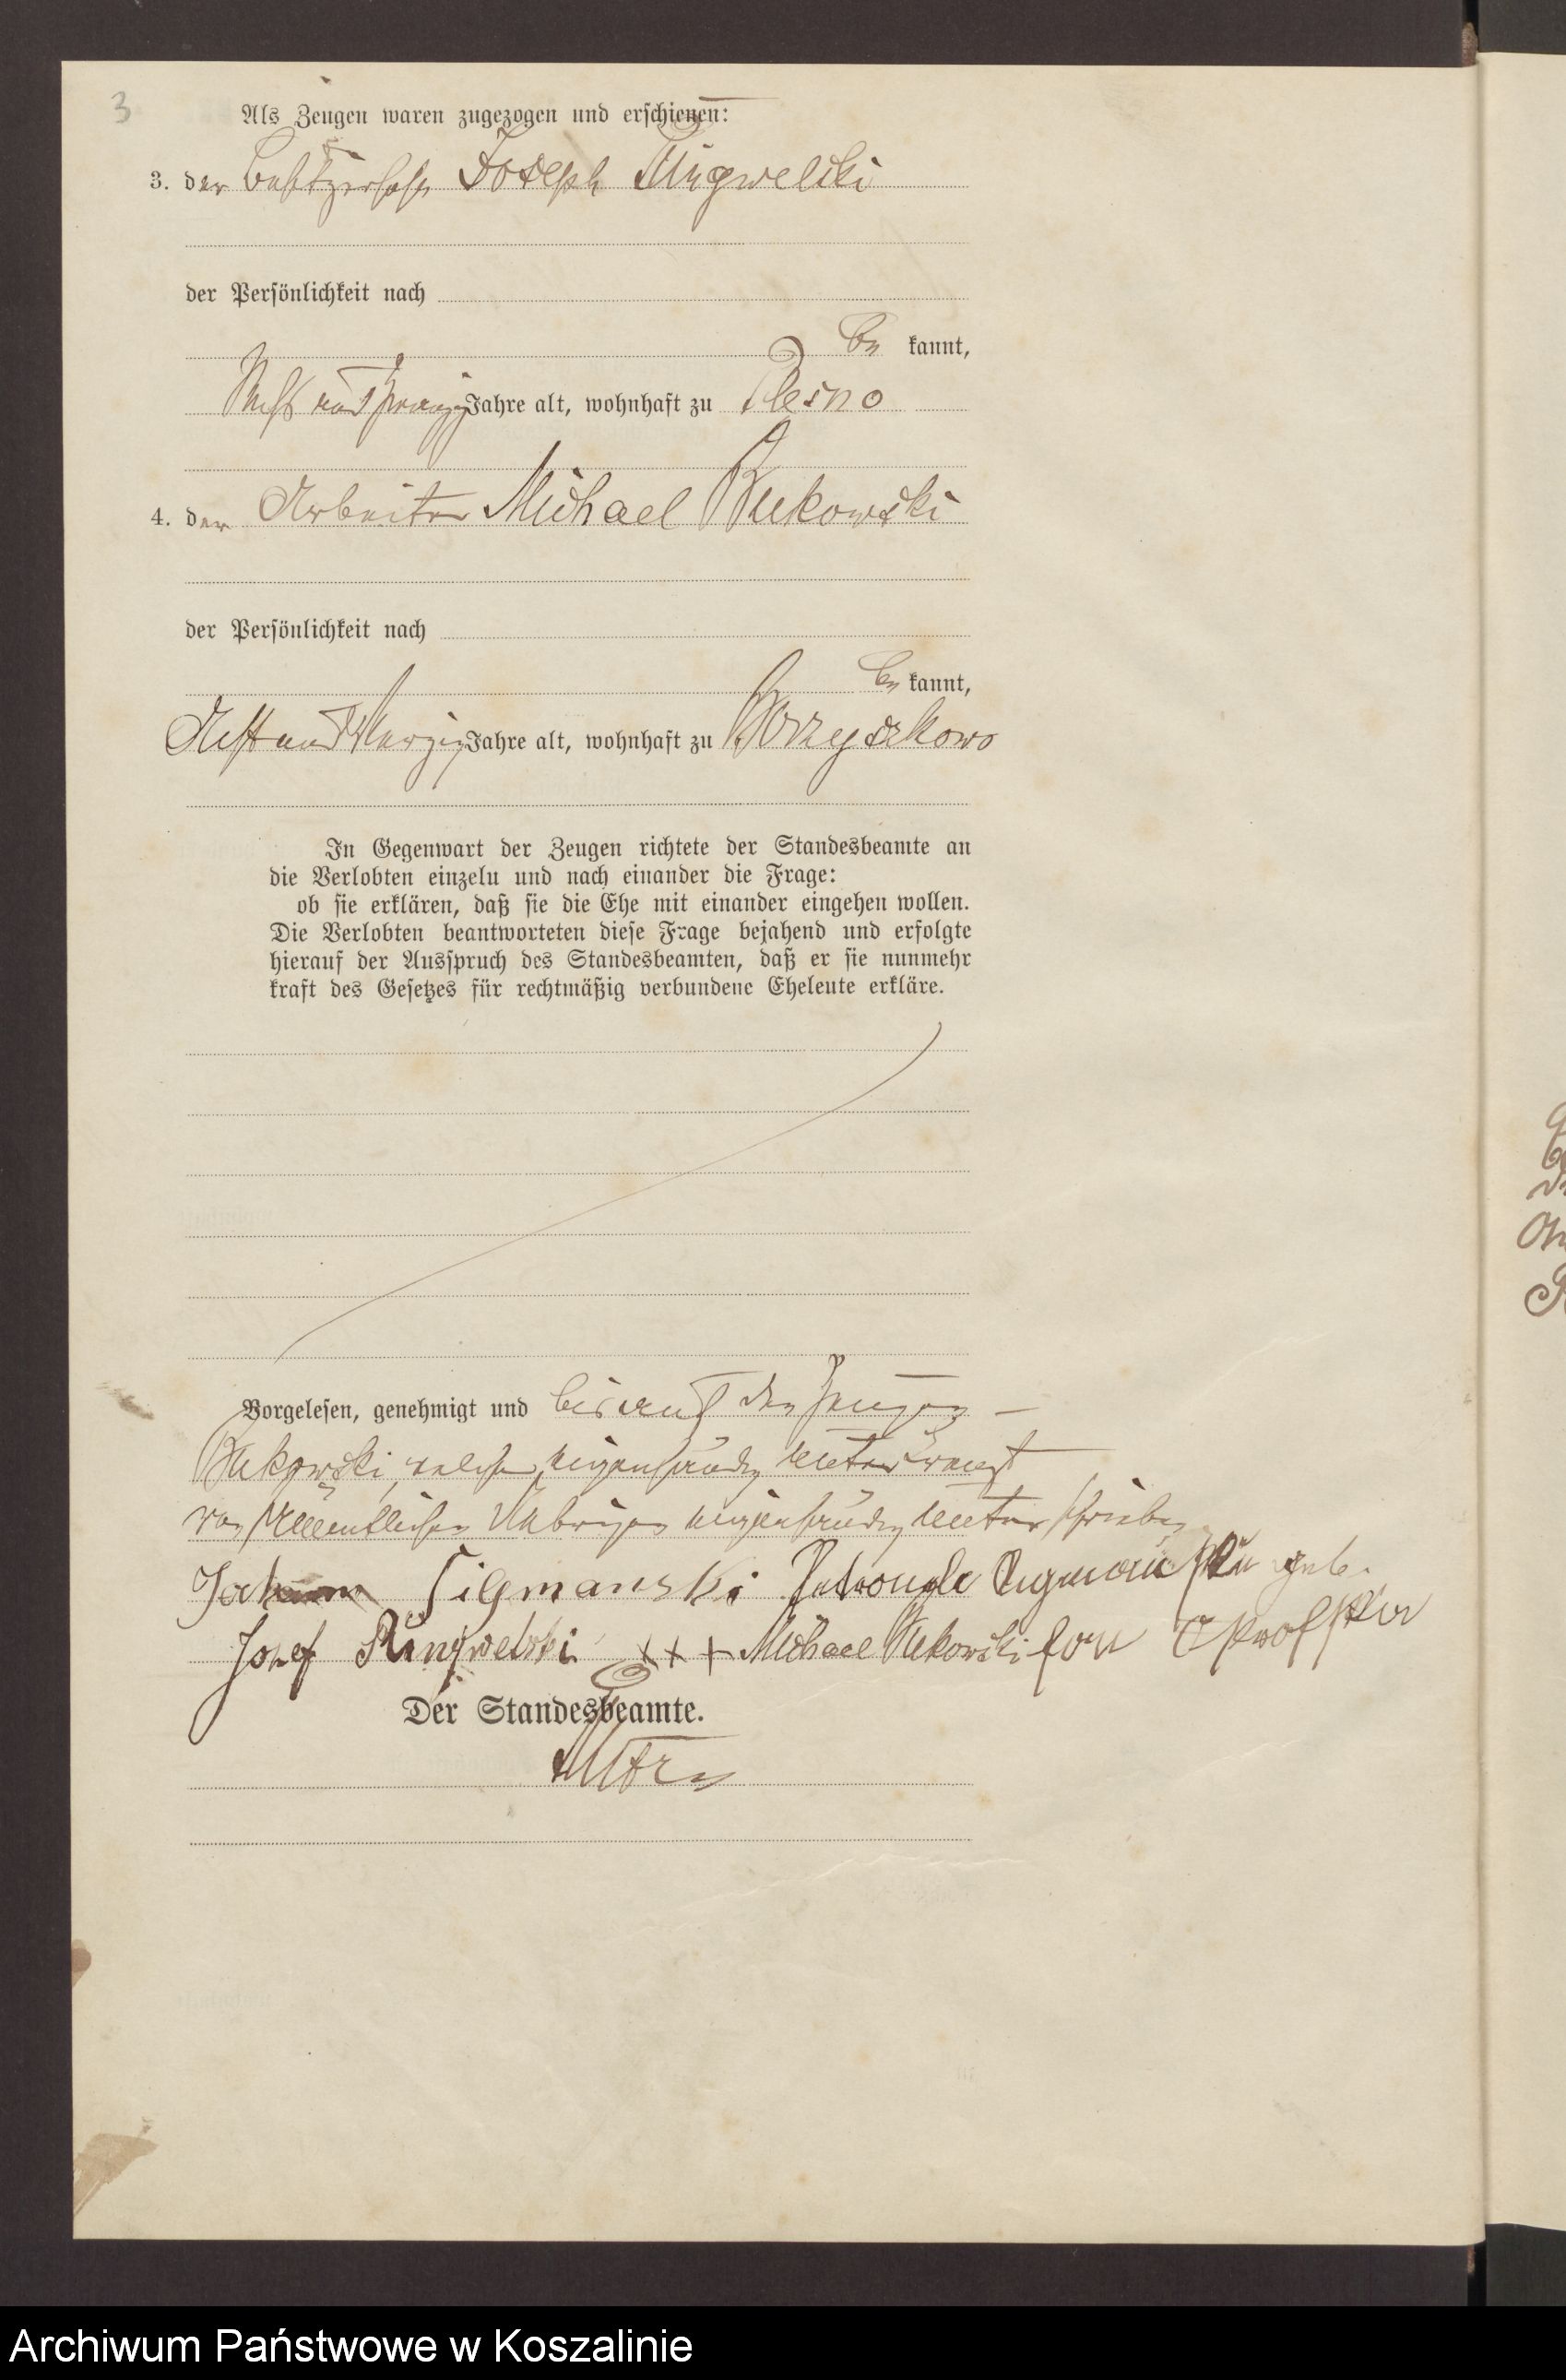 3
Als Zeugen waren zugezogen und erschienen:
3. der Besitzersohn Joseph
der Persönlichkeit nach
be kannt,
Sechs und zwanzig Jahre alt, wohnhaft zu Lesno
4. der Arbeiter Michael Bukowski
der Persönlichkeit nach
be kannt,
Acht und vierzig Jahre alt, wohnhaft zu Orzyszkowo
In Gegenwart der Zeugen richtete der Standesbeamte an
die Verlobten einzeln und nach einander die Frage:
ob sie erklären, daß sie die Ehe mit einander eingehen wollen.
Die Verlobten beantworteten diese Frage bejahend und erfolgte
hierauf der Ausspruch des Standesbeamten, daß er sie nunmehr
kraft des Gesetzes für rechtmäßig verbundene Eheleute erkläre.
Vorgelesen, genehmigt und bis auf den Zeugen
Bukowski, welcher eigenhändig unterkreuzt
von sämmtlichen Uebrigen eigenhändig unterschrieben
Johann
Josef +++ Michael Bukowski
Der Standesbeamte.
Archiwum Państwowe w Koszalinie